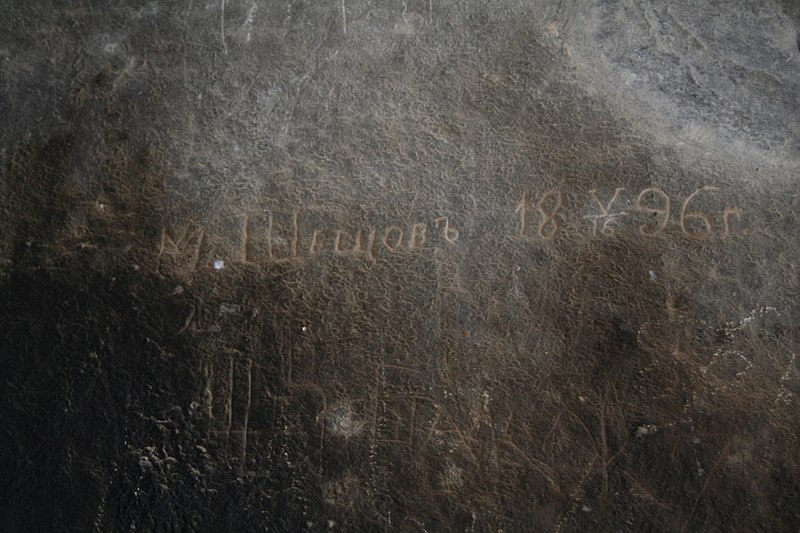 М. Шишовъ 18 V/6 96 г.